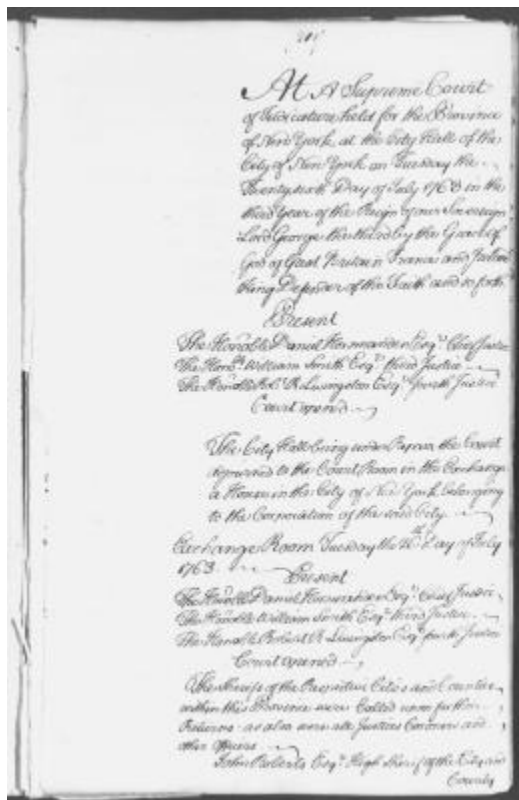 At A Supreme Court
of Judicature held for the Province
of New York, at the City Hall of the
City of New York on Tuesday the
Twenty sixth Day of July 1763 in the
third Year of the Reign of our Sovereign
Lord George the third by the Grace of
God of Great Britain France and Ireland
King Defender of the Faith and so forth
Present
The Honble Daniel Horsmanden Esqr. Chief Justice
The Honble William Smith Esqr. third Justice
The Honble Robt. R Livingston Esqr. fourth Justice
Court opened
The City Hall being under Repair the Court
adjourned to the Court Room in the Exchange
a House in the City of New York belonging
to the Corporation of the said City
Exchange Room Tuesday the 26th. Day of July
1763
Present
The Honble Daniel Horsmanden Esqr. Chief Justice
The Honble William Smith Esqr. third Justice
The Honble Robert R Livingston Esqr. fourth Justice
Court opened
The Sheriffs of the Respective Cities and Counties
within this Province were Called upon for their
Returns as also were all Justices Coroners and
other officers
John Roberts Esqr. High Sheriff of the City and
County